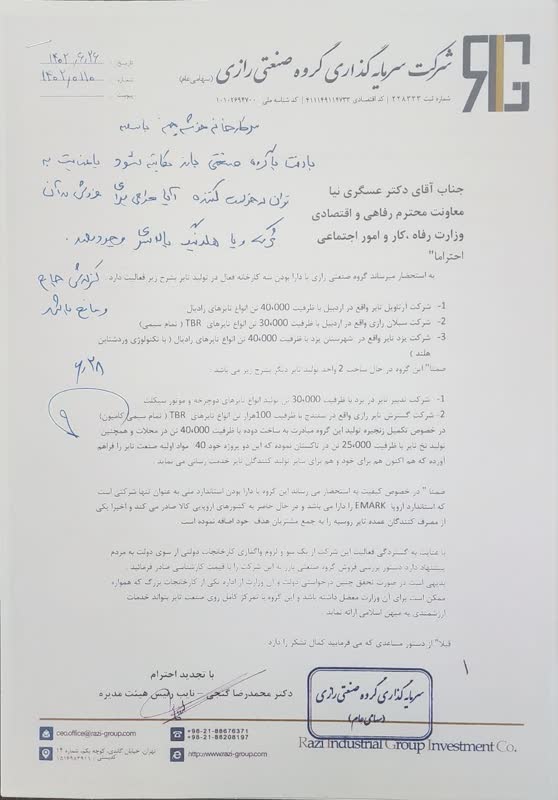 شرکت سرمایه گذاری گروه صنعتی رازی (سهامی عام)
شماره ثبت ۲۴۸۳۳۳ | کد اقتصادی ۴۱۱۱۴۹۱۱۹۷۳۳ | کد شناسه ملی ۱۰۱۰۲۶۹۴۷۰۰
تاریخ : ۱۴۰۲٫۶٫۲۶
شماره : ۱۴۰۲٫۵٫۱۱۵
پیوست :
جناب آقای دکتر عسگری نیا
معاونت محترم رفاهی و اقتصادی
وزارت رفاه ،کار و امور اجتماعی
احتراما"
به استحضار میرساند گروه صنعتی رازی با دارا بودن سه کارخانه فعال در تولید تایر بشرح زیر فعالیت دارد.
1- شرکت آرتاویل تایر واقع در اردبیل با ظرفیت 40،000 تن انواع تایرهای رادیال
2- شرکت سبلان رازی واقع در اردبیل با ظرفیت 30،000 تن انواع تایرهای TBR ( تمام سیمی)
3- شرکت یزد تایر واقع در شهرستان یزد با ظرفیت 40،000 تن انواع تایرهای رادیال ( با تکنولوژی وردشتاین
هلند )
ضمنا" این گروه در حال ساخت 2 واحد تولید تایر دیگر بشرح زیر می باشد :
1- شرکت تدبیر تایر در یزد با ظرفیت 30،000 تن تولید انواع تایرهای دوچرخه و موتور سیکلت
2- شرکت گسترش تایر رازی واقع در سنندج با ظرفیت 100هزار تن انواع تایرهای TBR ( تمام سیمی کامیون)
در خصوص تکمیل زنجیره تولید این گروه مبادرت به ساخت دوده با ظرفیت 40،000 تن در محلات و همچنین
تولید نخ تایر با ظرفیت 25،000 تن در تاکستان نموده که این دو پروژه خود 40٪ مواد اولیه صنعت تایر را فراهم
آورده که هم اکنون هم برای خود و هم برای سایر تولید کنندگان تایر خدمت رسانی می نماید .
ضمنا " در خصوص کیفیت به استحضار می رساند این گروه با دارا بودن استاندارد ملی به عنوان تنها شرکتی است
که استاندارد اروپا EMARK را دارا می باشد و در حال حاضر به کشورهای اروپایی کالا صادر می کند و اخیرا یکی
از مصرف کنندگان عمده تایر روسیه را به جمع مشتریان هدف خود اضافه نموده است
با عنایت به گستردگی فعالیت این شرکت از یک سو و لزوم واگذاری کارخانجات دولتی از سوی دولت به مردم
پیشنهاد دارد دستور بررسی فروش گروه صنعتی بارز به این شرکت را با قیمت کارشناسی صادر فرمائید .
بدیهی است در صورت تحقق چنین درخواستی دولت و آن وزارت از اداره یکی از کارخانجات بزرگ که همواره
ممکن است برای آن وزارت معضل داشته باشد و این گروه با تمرکز کامل روی صنعت تایر بتواند خدمات
ارزشمندی به میهن اسلامی ارائه نماید.
قبلا" از دستور مساعدی که می فرمایید کمال تشکر را دارد
با تجدید احترام
دکتر محمدرضا گنجی – نایب رئیس هیئت مدیره
سرمایه گذاری گروه صنعتی رازی
(سهامی عام)
۶٫۲۸
Razi Industrial Group Investment Co.
+98-21-88676371
+98-21-88208197
http://www.razi-group.com
ceo.office@razi-group.com
تهران، خیابان گاندی، کوچه یکم، شماره ۱۴